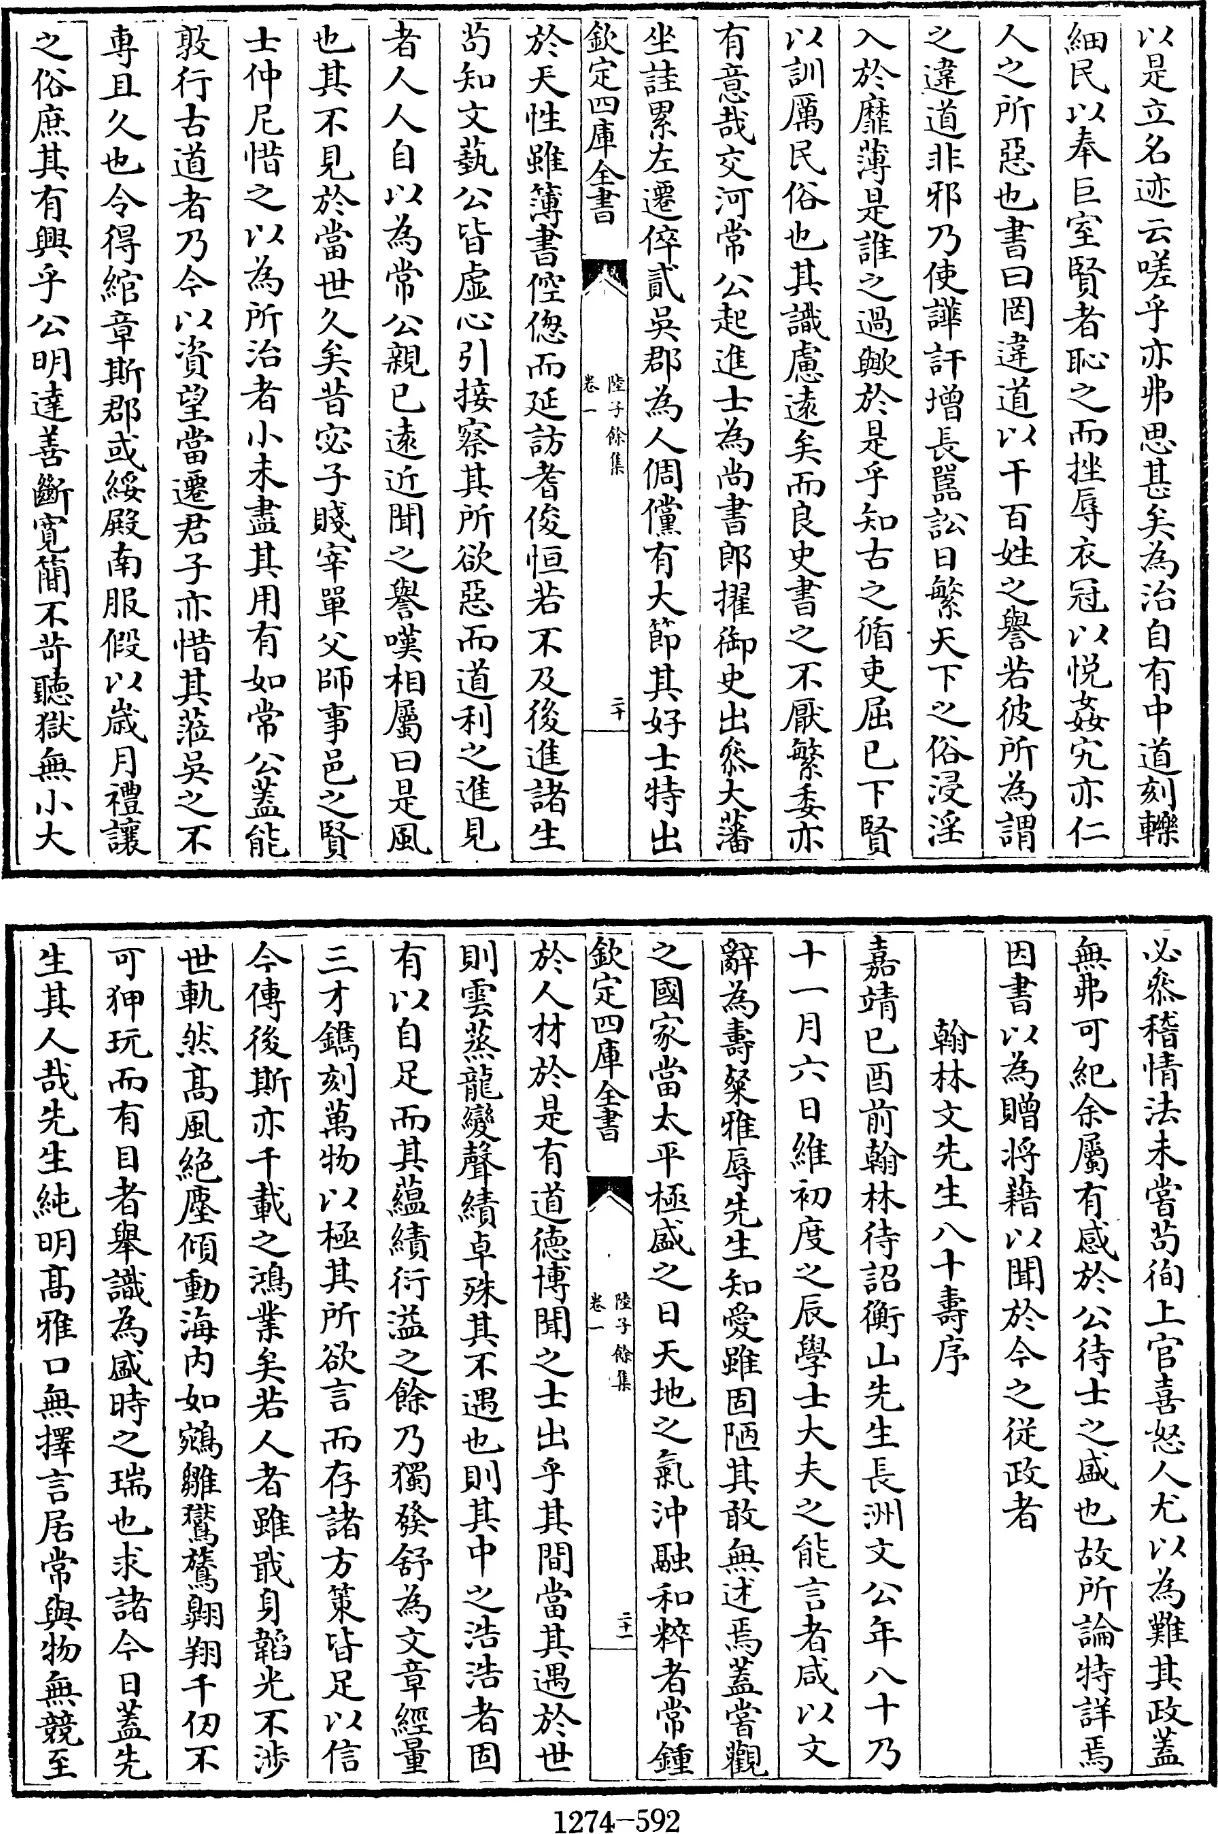 以是立名迹云嗟乎亦弗思甚矣為治自有中道刻轢
細民以奉巨室賢者恥之而挫辱衣冠以悅姦宄亦仁
人之所惡也書曰罔違道以干百姓之譽若彼所為謂
之違道非邪乃使譁訐增長嚚訟日繁天下之俗浸淫
入於靡薄是誰之過歟於是乎知古之循吏屈已下賢
以訓厲民俗也其識慮遠矣而良史書之不厭繁委亦
有意哉交河常公起進士為尚書郎擢御史出叅大藩
坐詿累左遷倅貳吳郡為人倜儻有大節其好士特出
欽定四庫全書
陸子餘集
卷一
二十
於天性雖簿書倥傯而延訪耆俊恒若不及後進諸生
茍知文藝公皆虛心引接察其所欲惡而道利之進見
者人人自以為常公親已遠近聞之譽嘆相屬曰是風
也其不見於當世久矣昔宓子賤宰單父師事邑之賢
士仲尼惜之以為所治者小未盡其用有如常公蓋能
敦行古道者乃今以資望當遷君子亦惜其蒞吳之不
專且久也令得綰章斯郡或綏殿南服假以歲月禮讓
之俗庶其有興乎公明達善斷寬簡不苛聽獄無小大
必叅稽情法未嘗茍徇上官喜怒人尤以為難其政蓋
無弗可紀余屬有感於公待士之盛也故所論特詳焉
因書以為贈將藉以聞於今之從政者
翰林文先生八十壽序
嘉靖已酉前翰林待詔衡山先生長洲文公年八十乃
十一月六日維初度之辰學士大夫之能言者咸以文
辭為壽粲雅辱先生知愛雖固陋其敢無述焉蓋嘗觀
之國家當太平極盛之日天地之氣沖融和粹者常鍾
欽定四庫全書
陸子餘集
卷一
二十一
於人材於是有道德博聞之士出乎其間當其遇於世
則雲蒸龍變聲績卓殊其不遇也則其中之浩浩者固
有以自足而其蘊績衍溢之餘乃獨發舒為文章經量
三才鐫刻萬物以極其所欲言而存諸方策皆足以信
今傳後斯亦千載之鴻業矣若人者雖戢身韜光不涉
世軌然高風絕塵傾動海內如鵷雛鸑鷟翺翔千仞不
可狎玩而有目者舉識為盛時之瑞也求諸今日蓋先
生其人哉先生純明高雅口無擇言居常與物無競至
1274-592